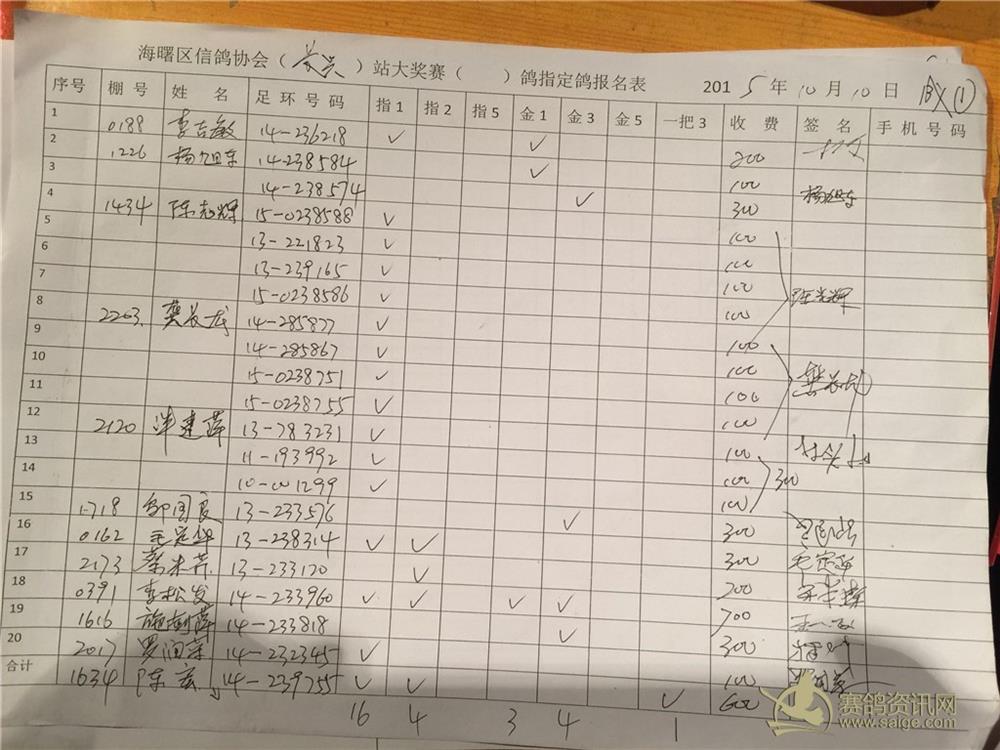 海曙区信鸽协会（长兴）站大奖赛（ ）鸽指定鸽报名表 2015年10月10日 ①
序号 棚号 姓名 足环号码 指1 指2 指5 金1 金3 金5 一把3 收费 签名 手机号码
1 0188 李吉敏 14-236218 ✓ ✓ 200
2 1226 杨旭东 14-238584 ✓ 100 杨旭东
3 14-238574 ✓ 300
4 1434 陈志辉 15-0238588 ✓ 100
5 13-221823 ✓ 100
6 13-239165 ✓ 100 陈志辉
7 15-0238586 ✓ 100
8 2203 龚长龙 14-285877 ✓ 100
9 14-285867 ✓ 100 龚长龙
10 15-0238751 ✓ 100
11 15-0238755 ✓ 100
12 2120 建萍 13-783231 ✓ 100
13 11-193992 ✓ 100 300
14 10-001299 ✓ 100
15 1718 邹国良 13-233576 ✓ 300
16 0162 毛定华 13-238314 ✓ ✓ 300 毛定华
17 2173 蔡米芹 13-233120 ✓ 200
18 0391 李松发 14-233960 ✓ ✓ ✓ ✓ 700
19 1616 施 萍 14-233818 ✓ 300
20 2017 罗润 14-232345 ✓ 100
合计 1634 陈 14-239755 ✓ ✓ ✓ 600
16 4 3 4 1
赛鸽资讯网
www.saige.com